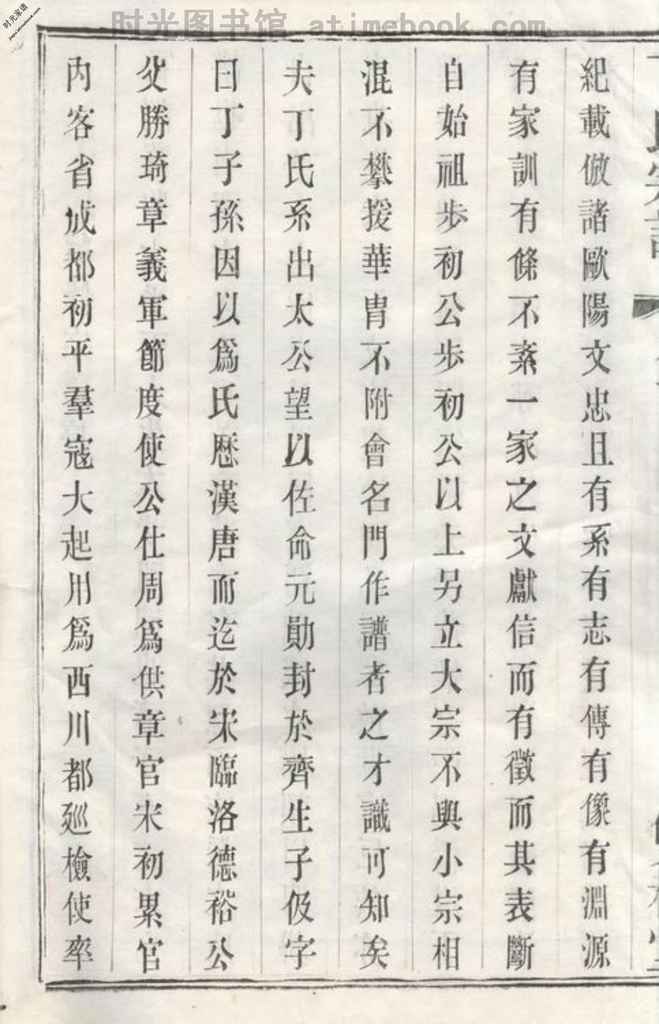 时光图书馆 atimebook.com
紀載倣諸歐陽文忠且有系有志有傳有像有淵源
有家訓有條不紊一家之文獻信而有徵而其表斷
自始祖步初公步初公以上另立大宗不與小宗相
混不攀援華胄不附會名門作譜者之才識可知矣
夫丁氏系出太公望以佐命元勛封於齊生子伋字
曰丁子孫因以爲氏歷漢唐而迄於宋臨洛德裕公
父勝琦章義軍節度使公仕周爲供章官宋初累官
內客省成都初平羣寇大起用爲西川都廵檢使率